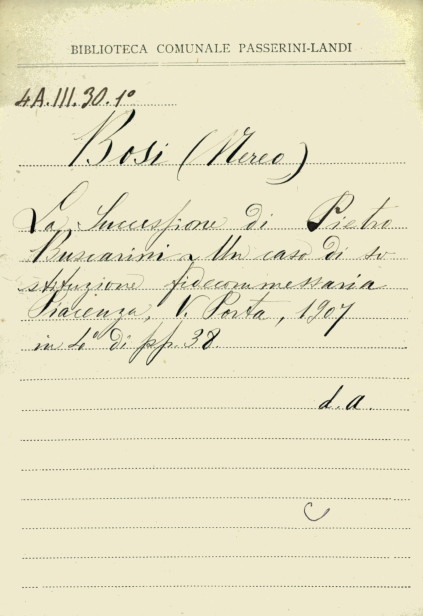 BIBLIOTECA COMUNALE PASSERINI-LANDI
4A.III.30.1°
Bosi (Nereo)
La Successione di Pietro
Buscarini - Un caso di so
stituzione fidecommessaria
Piacenza, V. Porta, 1907
in 4° di pp. 38.
d. a.